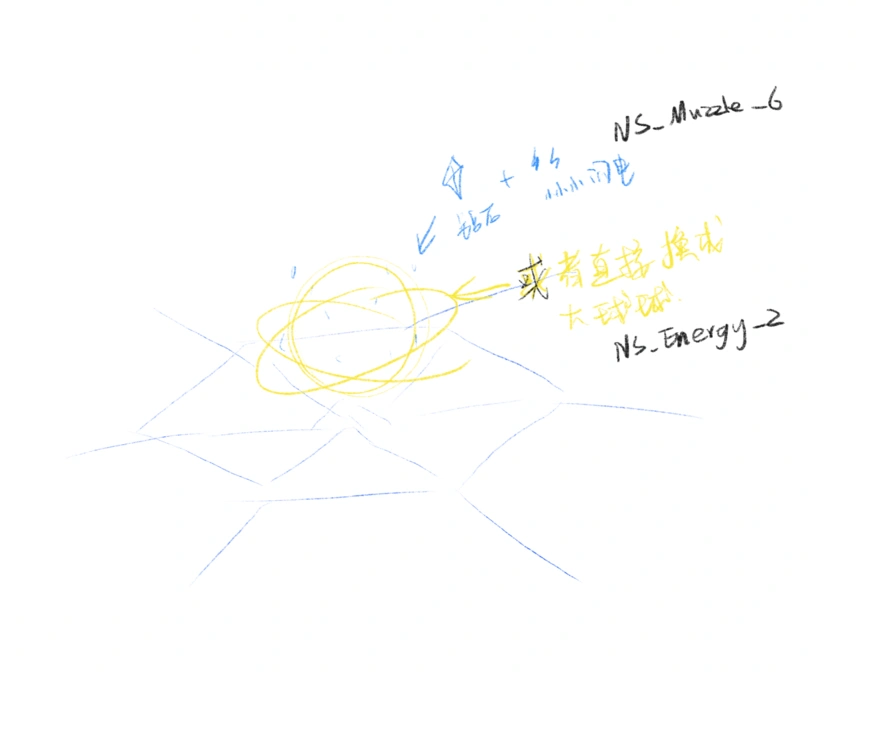 NS_Muzzle_6
+ 小小闪电
钻石
或者直接换成
大球球
NS_Energy_2